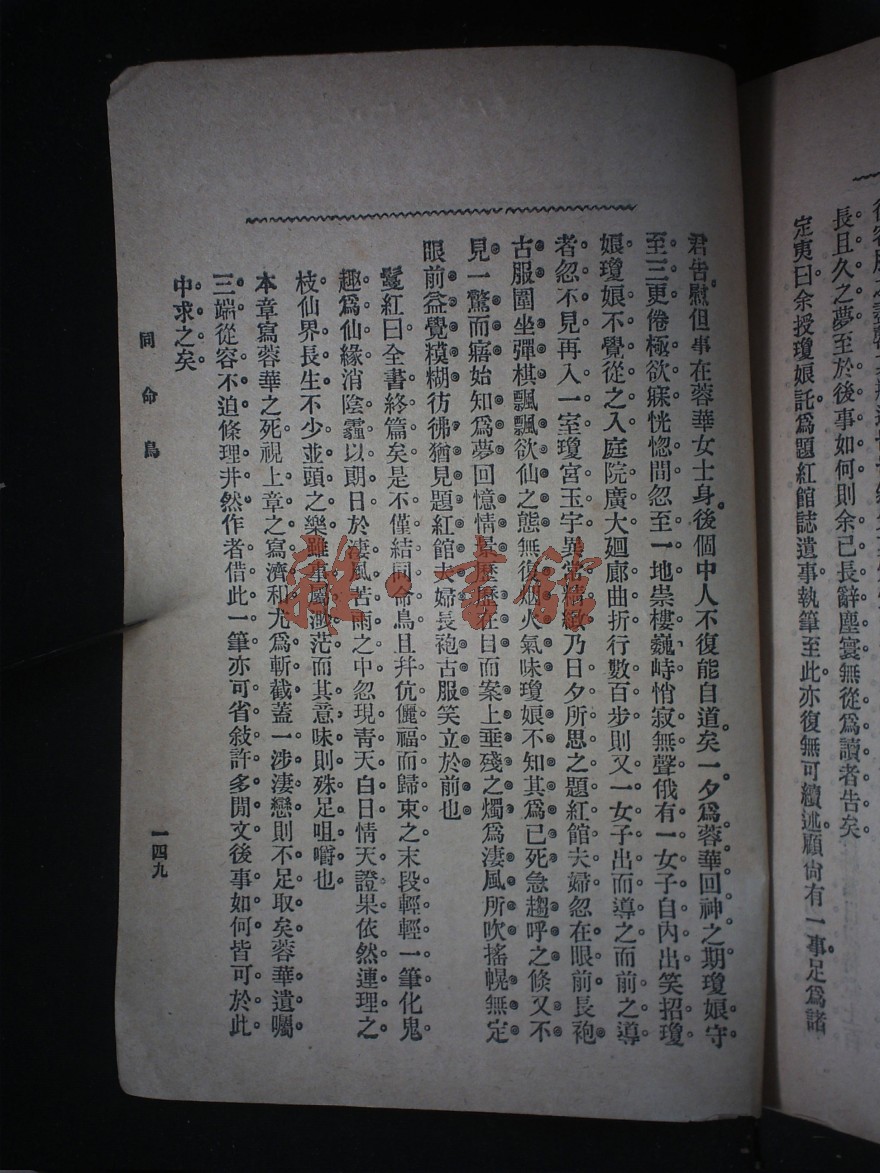 長且久之夢至於後事如何則余已長辭塵寰無從爲讀者告矣
定夷曰余授瓊娘託爲題紅館誌遺事執筆至此亦復無可續述顧尙有一事足爲諸
君告慰但事在蓉華女士身後個中人不復能自道矣一夕爲蓉華回神之期瓊娘守
至三更倦極欲寐恍惚間忽至一地崇樓巍峙悄寂無聲俄有一女子自內出笑招瓊
娘瓊娘不覺從之入庭院廣大廻廊曲折行數百步則又一女子出而導之而前之導
者忽不見再入一室瓊宮玉宇異常精緻乃日夕所思之題紅館夫婦忽在眼前長袍
古服圍坐彈棋飄飄欲仙之態無復烟火氣味瓊娘不知其爲已死急趨呼之倏又不
見一驚而寤始知爲夢回憶情景歷歷在目而案上垂殘之燭爲淒風所吹搖幌無定
眼前益覺糢糊彷彿猶見題紅館夫婦長袍古服笑立於前也
鬘紅曰全書終篇矣是不僅結同命鳥且幷伉儷福而歸束之末段輕輕一筆化鬼
趣爲仙緣消陰霾以朗日於淒風苦雨之中忽現靑天白日情天證果依然連理之
枝仙界長生不少並頭之樂雖事屬渺茫而其意味則殊足咀嚼也
本章寫蓉華之死視上章之寫濟和尤爲斬截蓋一涉淒戀則不足取矣蓉華遺囑
三端從容不迫條理井然作者借此一筆亦可省敍許多閒文後事如何皆可於此
中求之矣
同命鳥
一四九
雜·書館